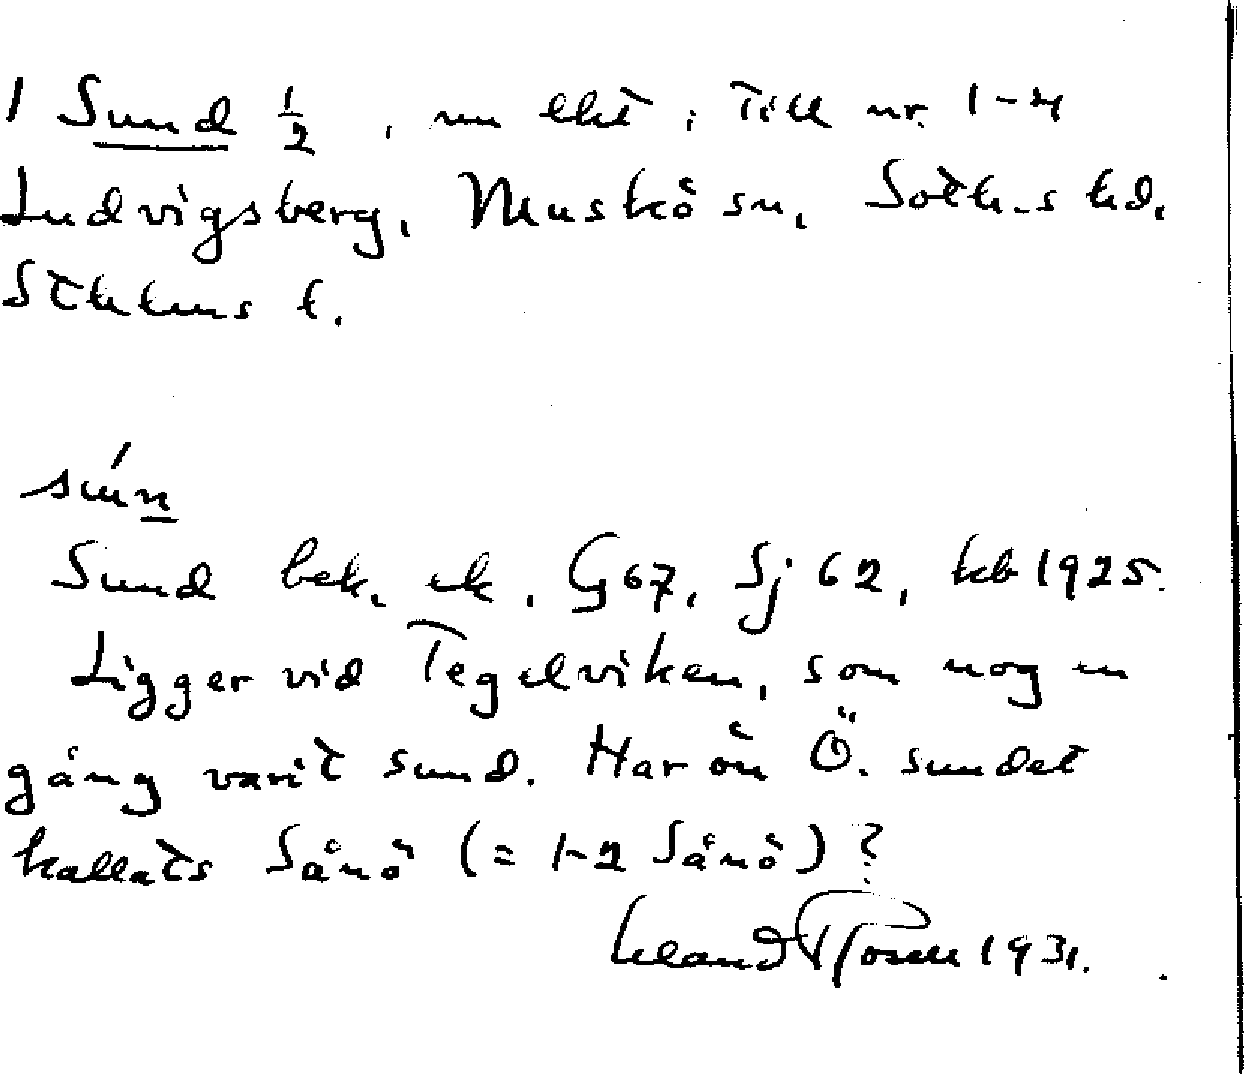 1 Sund ½, nu lht, till nr. 1-4
Ludvigsberg, Muskö sn, Soth.s hd.
Sthlms l.
sún
Sund bek. ek. G67, Sj 62, kb 1925.
Ligger vid Tegelviken, som nog en
gång varit sund. Har ön Ö. sundet
kallats Sånö (= 1-2 Sånö)?
1931.